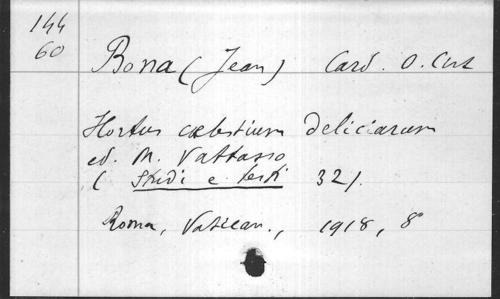 144
60
Bona (Jean) Card. O. Cist
Hortus cælestium deliciarum
ed. M. Vattasso
( Studi e testi 32).
Roma, Vatican., 1918, 8°